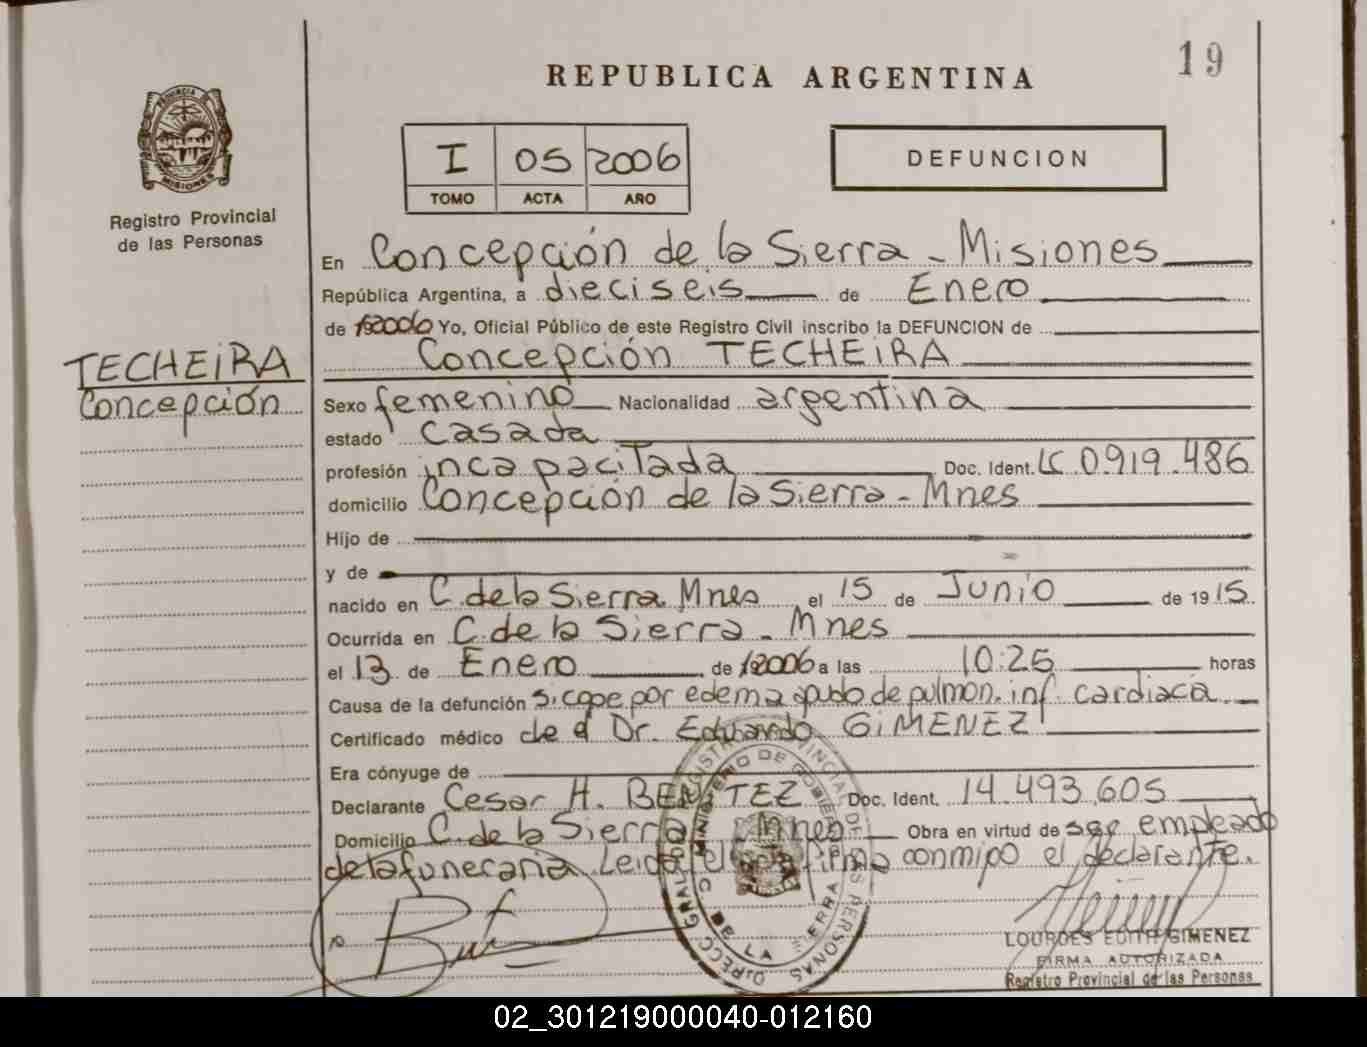 19
REPUBLICA ARGENTINA
PROVINCIA DE
MISIONES
Registro Provincial
de las Personas
I 05 2006
TOMO ACTA AÑO
DEFUNCION
En Concepción de la Sierra - Misiones
República Argentina, a dieciseis de Enero
de 2006 Yo, Oficial Público de este Registro Civil inscribo la DEFUNCION de
Concepción TECHEiRA
TECHEiRA
Concepción
Sexo femenino Nacionalidad argentina
estado casada
profesión incapaciTada Doc. Ident. LC 0919.486
domicilio Concepción de la Sierra - Mnes
Hijo de
y de
nacido en C. de la Sierra Mnes el 15 de Junio de 1915
Ocurrida en C. de la Sierra - Mnes
el 13 de Enero de 2006 a las 10:25 horas
Causa de la defunción sicope por edema agudo de pulmon. inf. cardiaca
Certificado médico de el Dr. Eduardo GiMENEZ
Era cónyuge de
Declarante Cesar H. BENiTEZ Doc. Ident. 14.493.605
Domicilio C. de la Sierra Mnes Obra en virtud de ser empleado
de la funeraria. Leida el acta firma conmigo el declarante.
LOURDES EDITH GIMENEZ
FIRMA AUTORIZADA
Registro Provincial de las Personas
DIRECC GRAL REGISTRO PROVINCIAL DE LAS PERSONAS
MINISTERIO DE GOBIERNO
C. DE LA SIERRA
02_301219000040-012160